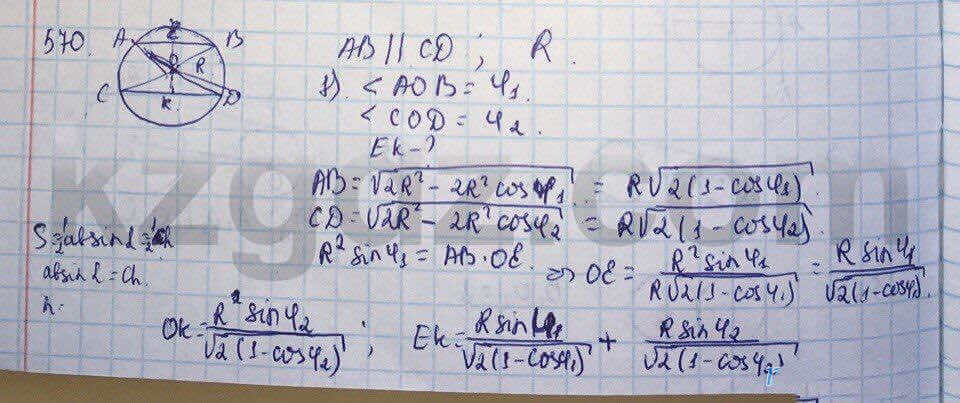 570. A E B AB || CD ; R.
O R
C K D
1). < AOB = φ₁.
< COD = φ₂.
EK - ?
AB = √2R² - 2R² cosφ₁ = R√2(1-cosφ₁).
CD = √2R² - 2R² cosφ₂ = R√2(1-cosφ₂).
S = ½ab sin α = ½ch
R² sin φ₁ = AB · OE. => OE = R² sin φ₁ / R√2(1-cosφ₁) = R sin φ₁ / √2(1-cosφ₁).
ab sin α = ch.
h.
OK = R² sin φ₂ / √2(1-cosφ₂) ; EK = R sin φ₁ / √2(1-cosφ₁) + R sin φ₂ / √2(1-cosφ₂)
kzgdz.com